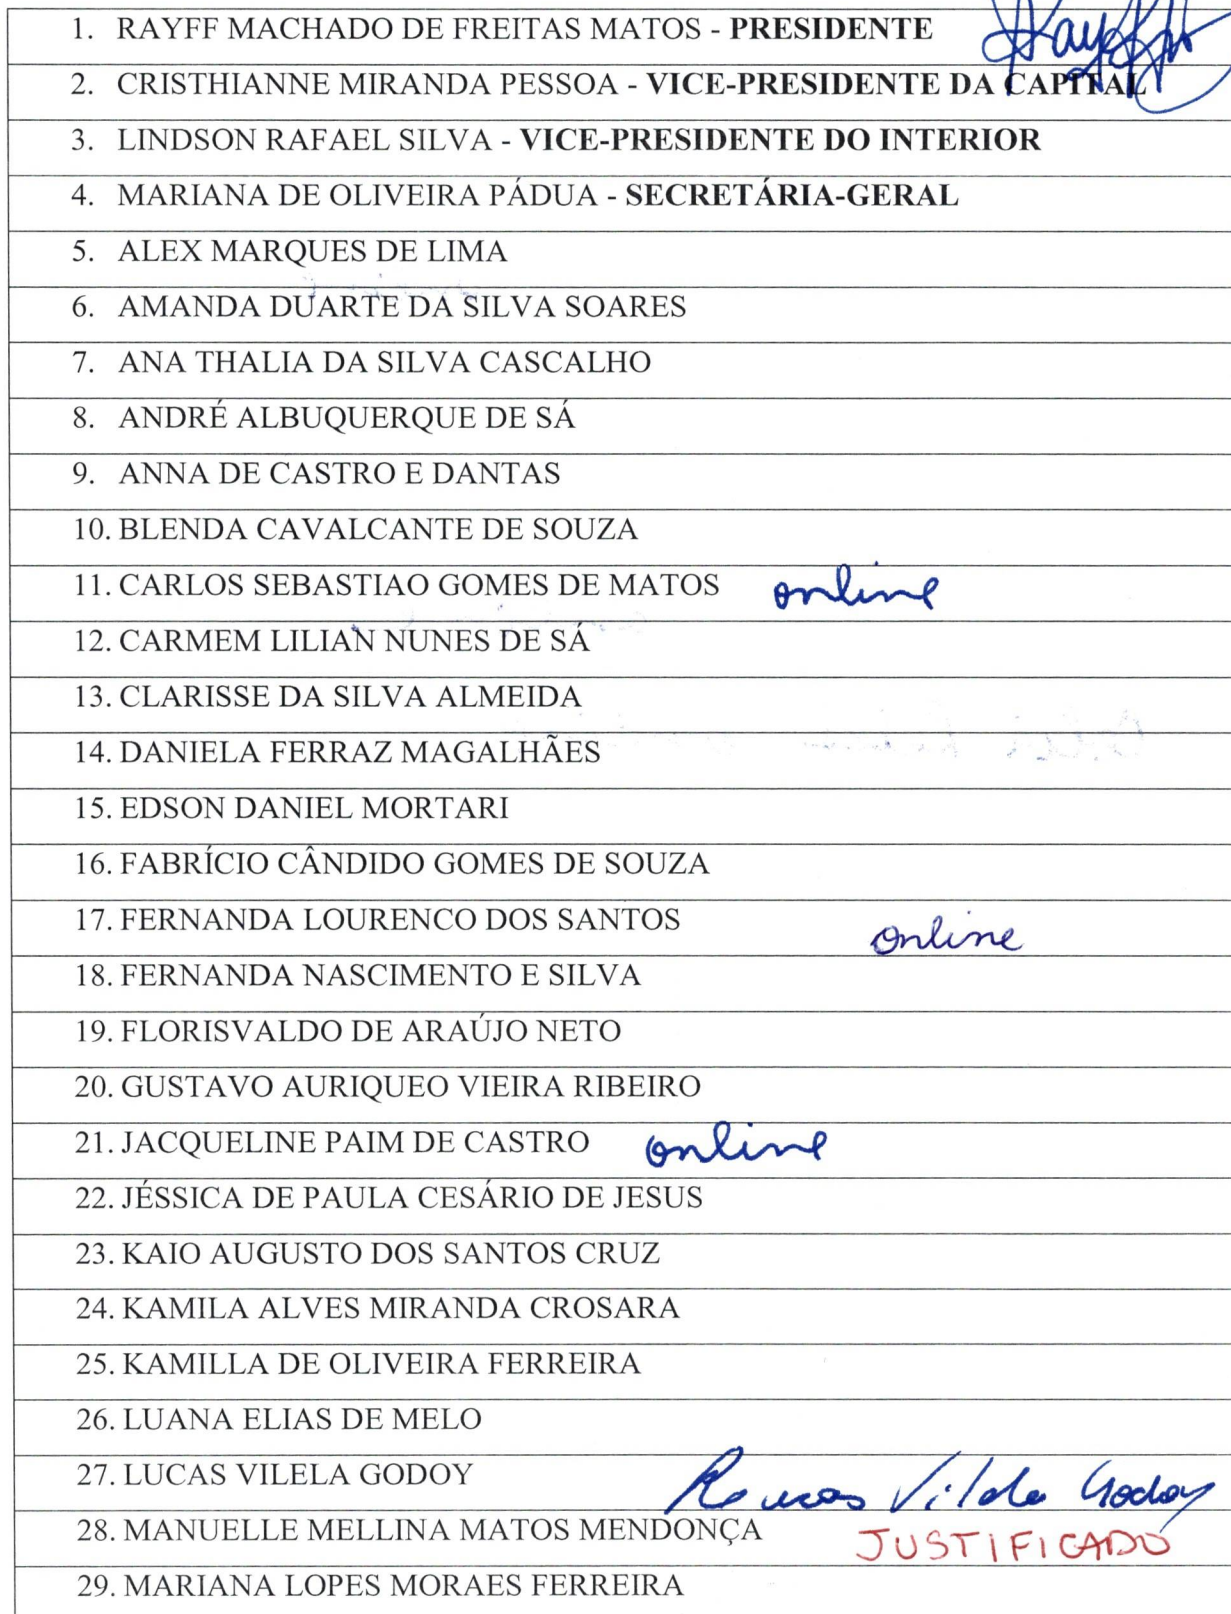 1. RAYFF MACHADO DE FREITAS MATOS - PRESIDENTE
2. CRISTHIANNE MIRANDA PESSOA - VICE-PRESIDENTE DA CAPITAL
3. LINDSON RAFAEL SILVA - VICE-PRESIDENTE DO INTERIOR
4. MARIANA DE OLIVEIRA PÁDUA - SECRETÁRIA-GERAL
5. ALEX MARQUES DE LIMA
6. AMANDA DUARTE DA SILVA SOARES
7. ANA THALIA DA SILVA CASCALHO
8. ANDRÉ ALBUQUERQUE DE SÁ
9. ANNA DE CASTRO E DANTAS
10. BLENDA CAVALCANTE DE SOUZA
11. CARLOS SEBASTIAO GOMES DE MATOS online
12. CARMEM LILIAN NUNES DE SÁ
13. CLARISSE DA SILVA ALMEIDA
14. DANIELA FERRAZ MAGALHÃES
15. EDSON DANIEL MORTARI
16. FABRÍCIO CÂNDIDO GOMES DE SOUZA
17. FERNANDA LOURENCO DOS SANTOS online
18. FERNANDA NASCIMENTO E SILVA
19. FLORISVALDO DE ARAÚJO NETO
20. GUSTAVO AURIQUEO VIEIRA RIBEIRO
21. JACQUELINE PAIM DE CASTRO online
22. JÉSSICA DE PAULA CESÁRIO DE JESUS
23. KAIO AUGUSTO DOS SANTOS CRUZ
24. KAMILA ALVES MIRANDA CROSARA
25. KAMILLA DE OLIVEIRA FERREIRA
26. LUANA ELIAS DE MELO
27. LUCAS VILELA GODOY Lucas Vilela Godoy
28. MANUELLE MELLINA MATOS MENDONÇA JUSTIFICADO
29. MARIANA LOPES MORAES FERREIRA